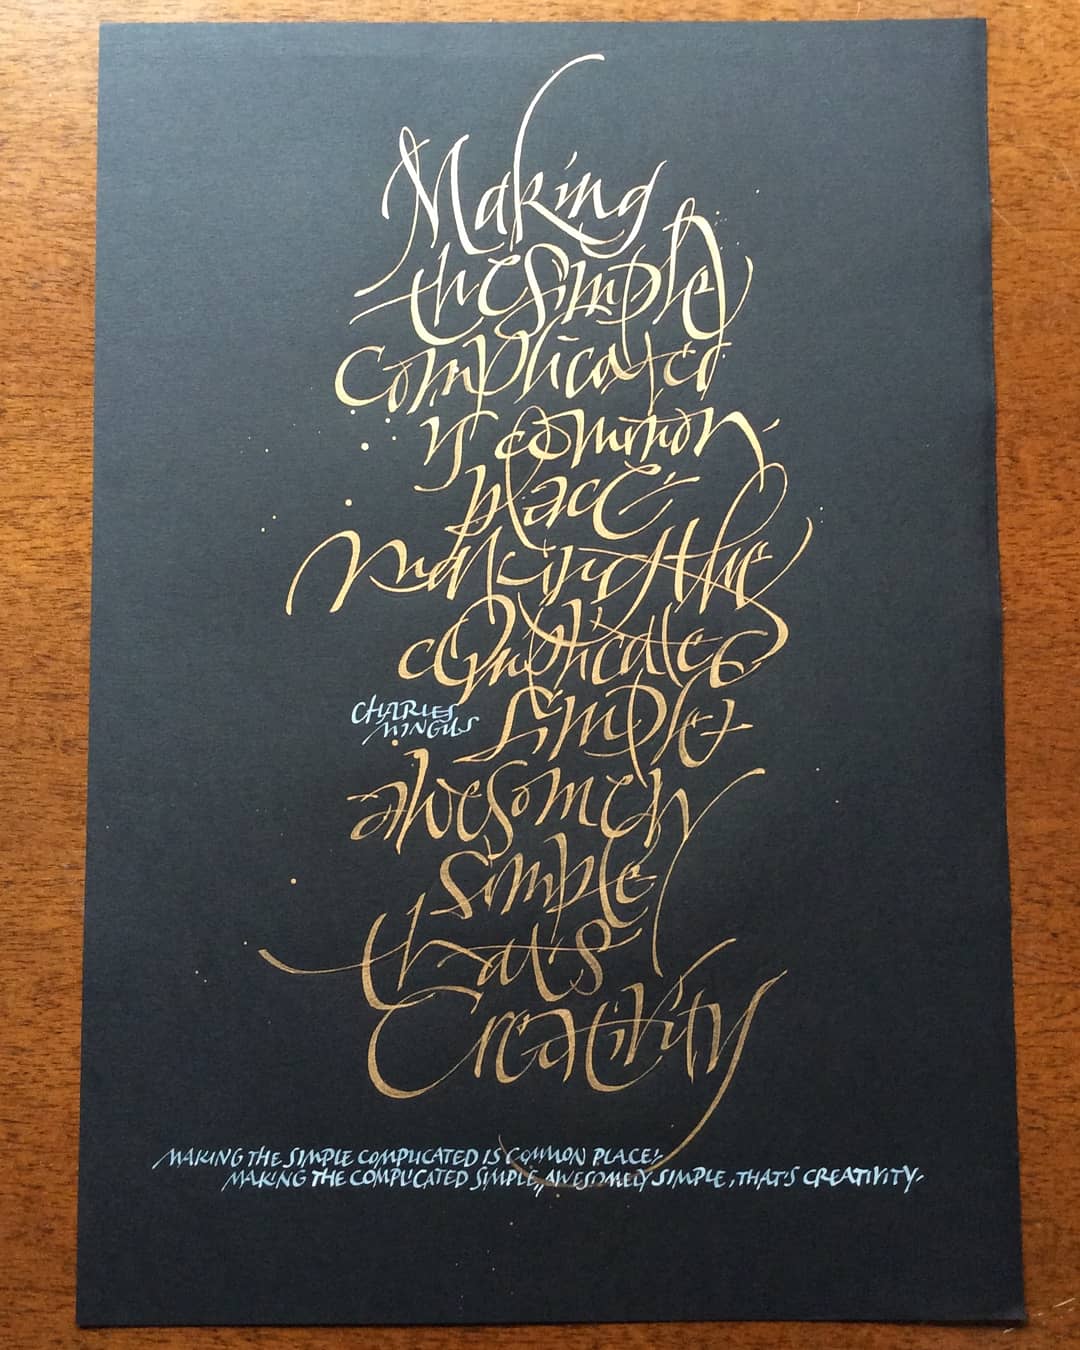 Making
the simple
complicated
is common
place
making the
complicated
simple
CHARLES
MINGUS
awesomely
simple
that's
Creativity
MAKING THE SIMPLE COMPLICATED IS COMMON PLACE.
MAKING THE COMPLICATED SIMPLE, AWESOMELY SIMPLE, THAT'S CREATIVITY.